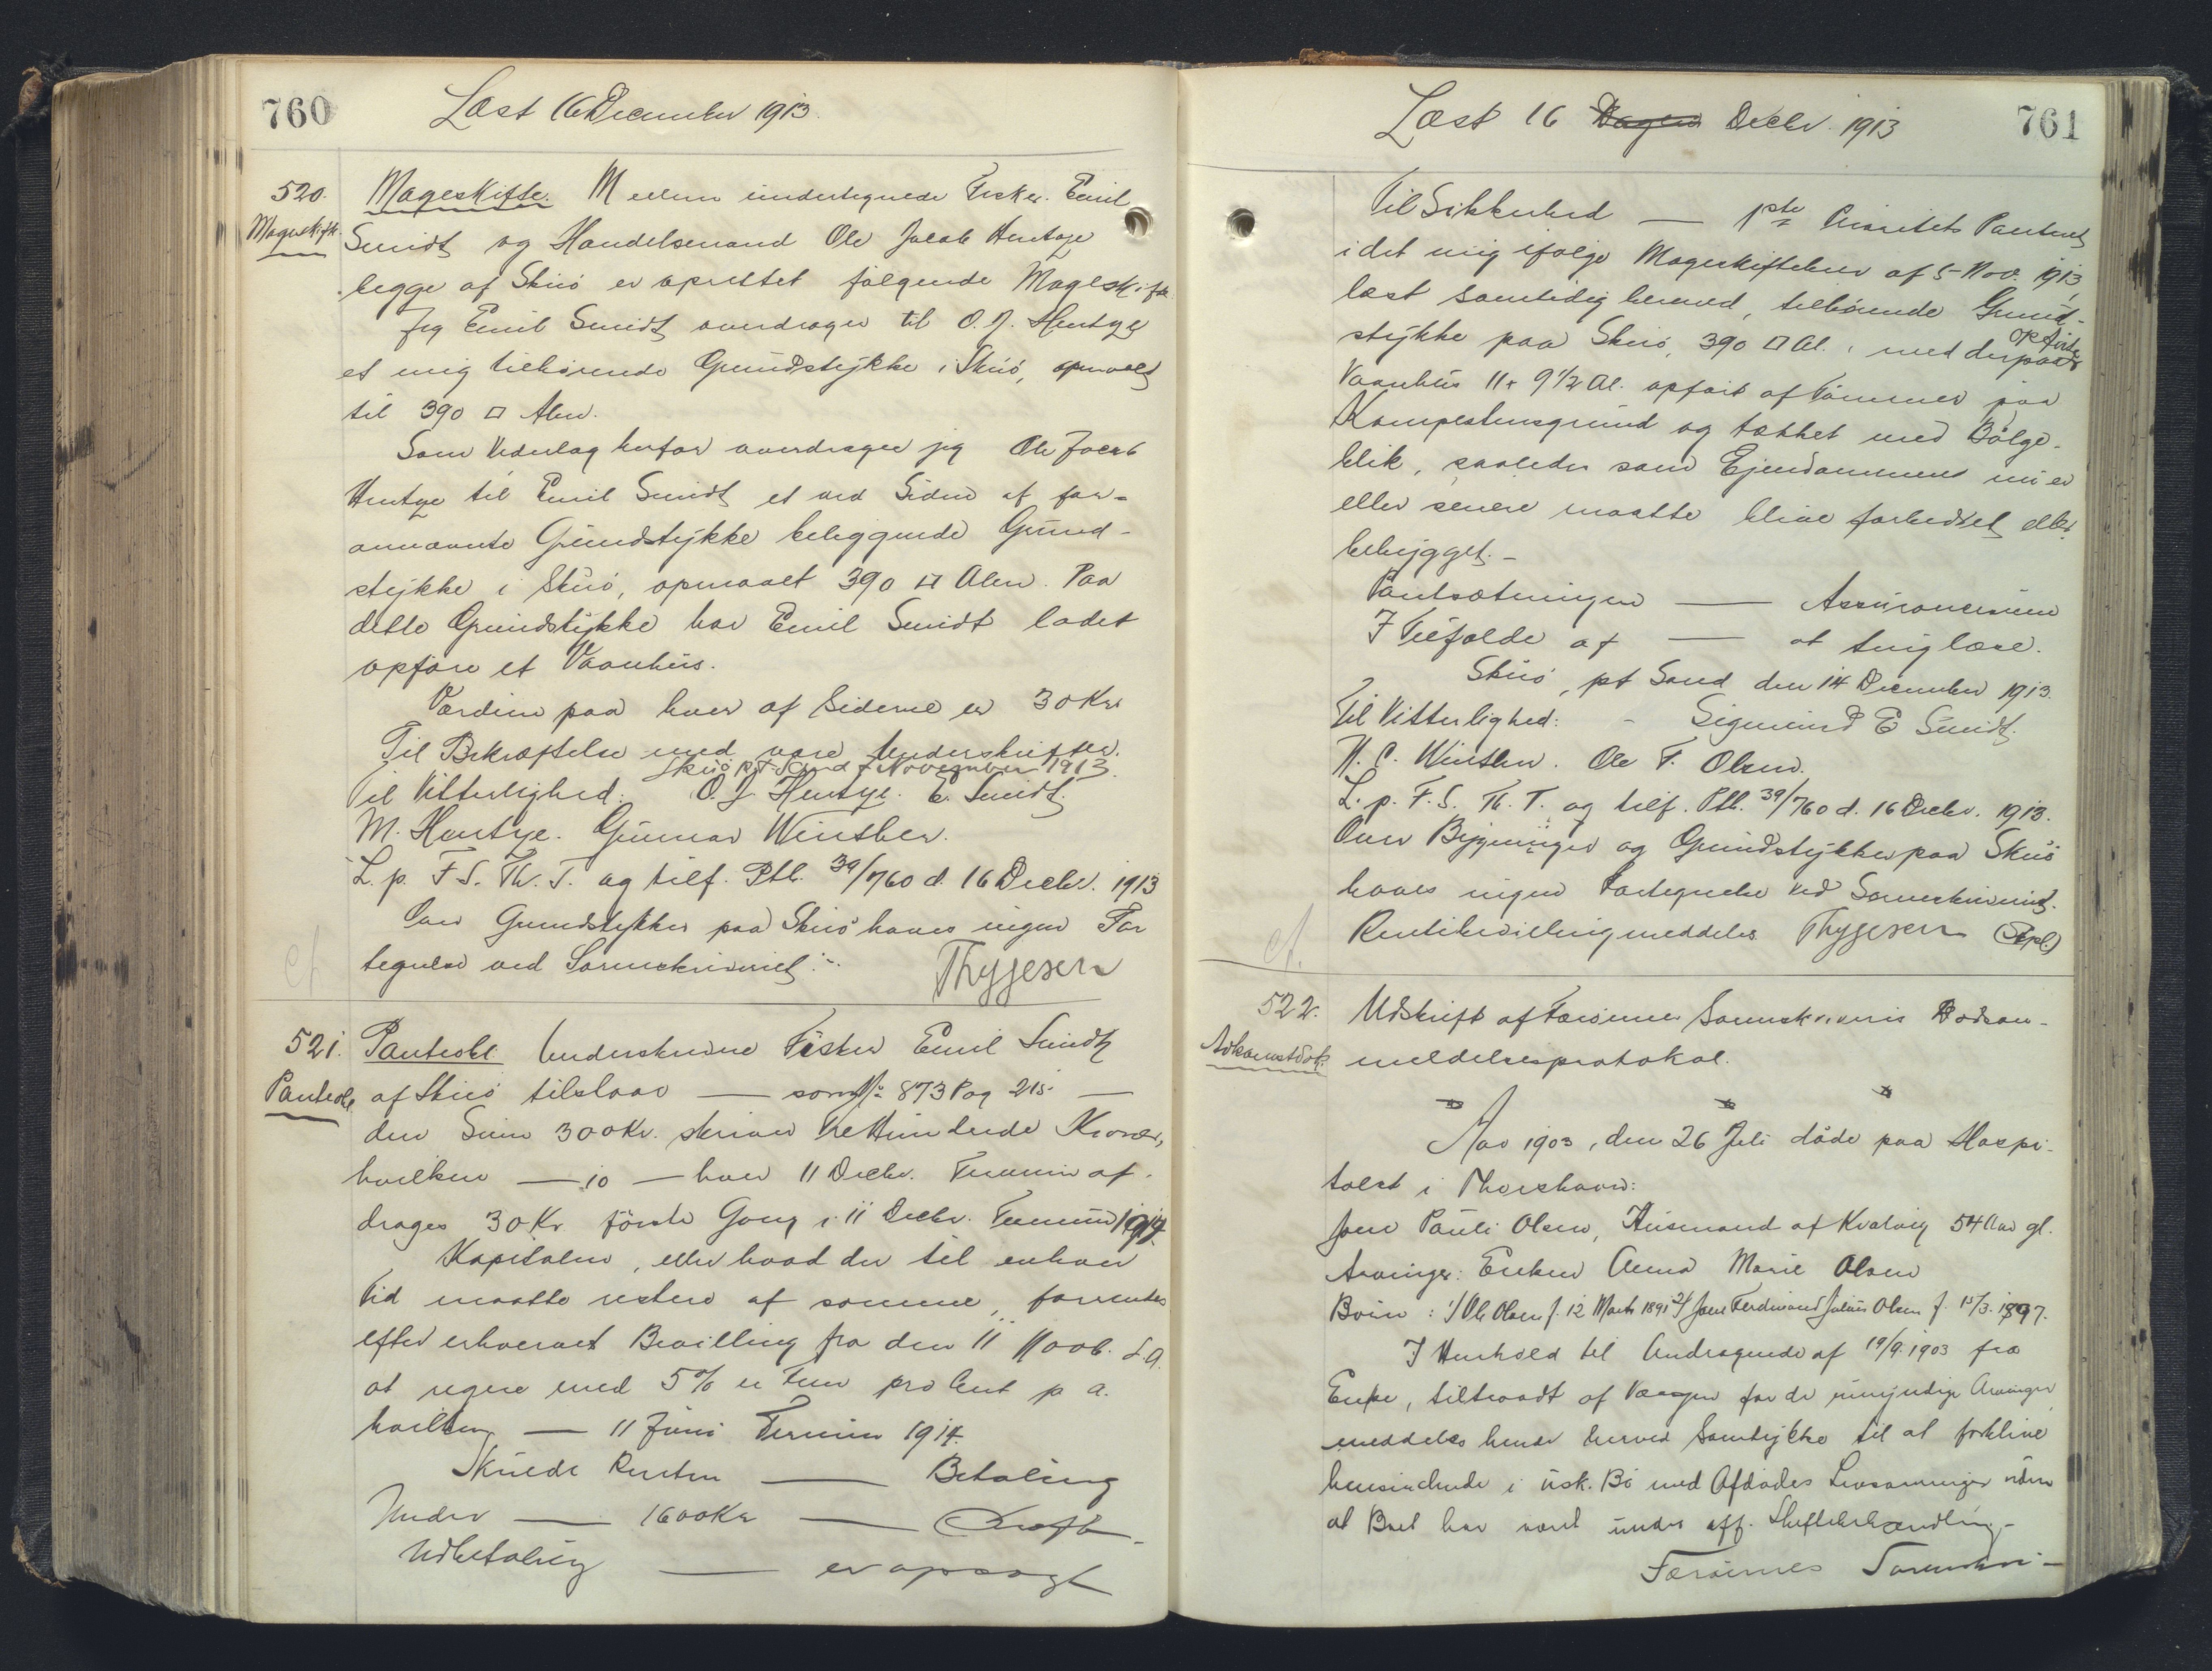 760
Læst 16 December 1913.
520.
Mageskift.
Mageskifte. Mellem undertegnede Fisker Emil
Smidt og Handelsmand Ole Jacob Hentze
begge af Skuö er oprettet følgende Mageskifte
Jeg Emil Smidt overdrager til O. J. Hentze
et mig tilhörende Grundstykke i Skuö, opmaalt
til 390 □ Alen.
Som Vederlag herfor overdrager jeg Ole Jacob
Hentze til Emil Smidt et ved Siden af for-
annævnte Grundstykke beliggende Grund-
stykke i Skuö, opmaalt 390 □ Alen. Paa
dette Grundstykke har Emil Smidt ladet
opføre et Vaanhus.
Værdien paa hver af Siderne er 30 Kr.
Til Bekræftelse med vore Underskrifter.
Skuö pt Sand November 1913.
Til Vitterlighed: O. J. Hentze. E. Smidt.
M. Hentze. Gunnar Winther.
L. p. F. S. Th. T. og tilf. Ptb. 39/760 d. 16 Decbr. 1913
Over Grundstykker paa Skuö haves ingen For
tegnelse ved Sorenskriveriet.
Thygesen
cf
521.
Panteobl.
Panteobl. Underskrevne Fisker Emil Smidt
af Skuö tilstaar — som No 873 Pag 215 —
den Sum 300 Kr. skriver Tre Hundrede Kroner,
hvilken — io — hver 11 Decbr. Termin af-
drages 30 Kr første Gang i 11 Decbr. Termin 1914.
Kapitalen, eller hvad der til enhver
Tid maatte restere af samme, forrentes
efter erhvervet Bevilling fra den 11 Novb. d. A.
at regne med 5% er Fem pro Cent p a.
hvilken — 11 Juni Termin 1914.
Skulde Renten — Betaling
Under — 1600 Kr — Kraft
Udbetaling — er opsagt
Læst 16 Decbr. 1913
761
Til Sikkerhed — 1ste Prioritets Panteret
i det mig ifølge Mageskiftebrev af 5 Nov. 1913,
læst samtidig hermed, tilhørende Grund-
stykke paa Skuö, 390 □ Al., med derpaa opførte
Vaanhus 11 x 9 1/2 Al. opført af Tømmer paa
Kampestensgrund og tækket med Bölge-
blik, saaledes som Ejendommen nu er
eller senere maatte blive forbedret eller
bebygget. —
Pantsætningen — Assurancesum
I Tilfælde af — at tinglæse.
Skuö, pt Sand den 14 December 1913.
Til Vitterlighed: Sigmund E Smidt.
H. C. Winther. Ole F. Olsen.
L. p. F. S. Th. T. og tilf. Ptb. 39/760 d. 16 Decbr. 1913.
Over Bygninger og Grundstykker paa Skuö
haves ingen Fortegnelse ved Sorenskriveriet.
Rentebevilling meddeles Thygesen
cf.
522.
Adkomstdok.
Udskrift af Færöernes Sorenskriveris Dödsan-
meldelsesprotokol.
Aar 1903, den 26 Juli døde paa Hospi-
talet i Thorshavn:
Jens Pauli Olsen, Husmand af Kvalvig 54 Aar gl.
Arvinger: Enken Anna Marie Olsen
Börn: 1/ Ole Olsen f. 12 Marts 1891 2/ Jens Ferdinand Julius Olsen f. 15/3. 1897.
I Henhold til Andragende af 19/9. 1903 fra
Enke, tiltraadt af Værgen for de umyndige Arvinger
meddeles hende herved Samtykke til at forblive
hensiddende i usk. Bo med Afdødes Livsarvinger uden
at Boet har været under off. Skiftebehandling. —
Færöernes Sorenskri-